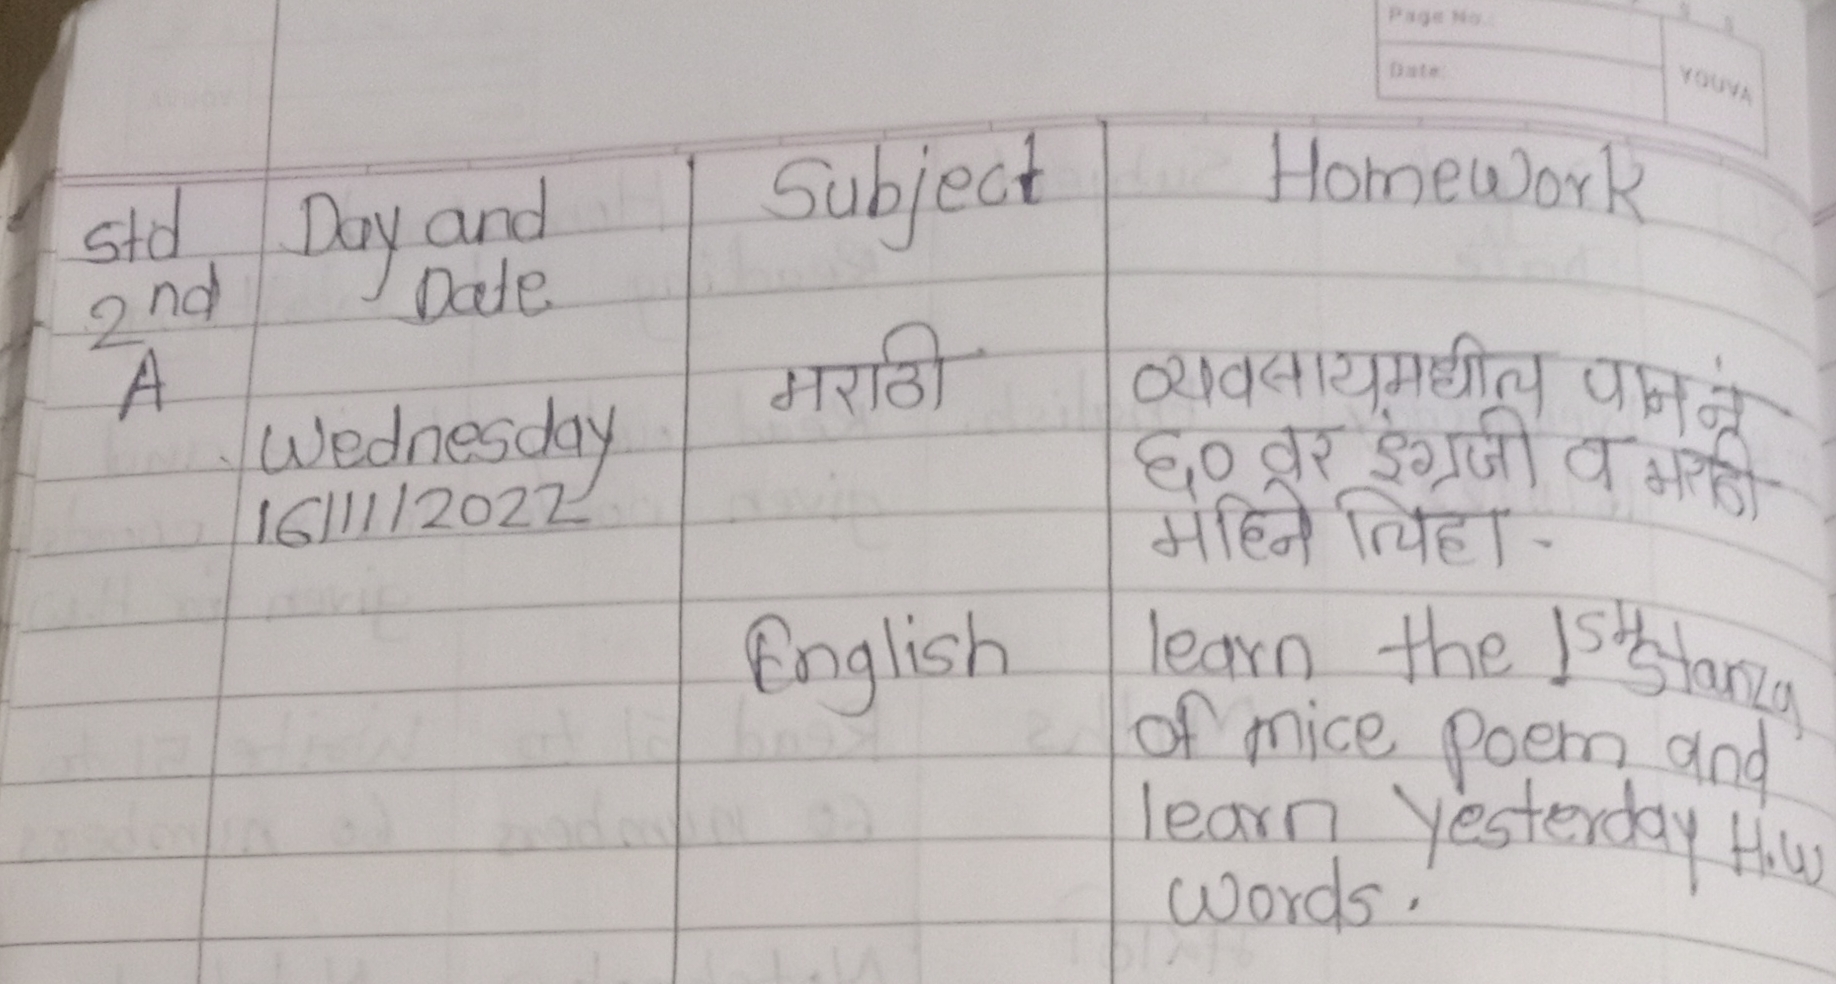 Page No.:
Date:
YOUVA
Std
2nd
A
Day and
Date
Subject
Homework
Wednesday
16/11/2022
मराठी
व्यवसायमधील पान नं
६० वर इंग्रजी व मराठी
महिने लिहा.
English
learn the 1st Stanza
of mice poem and
learn Yesterday H.W
words.